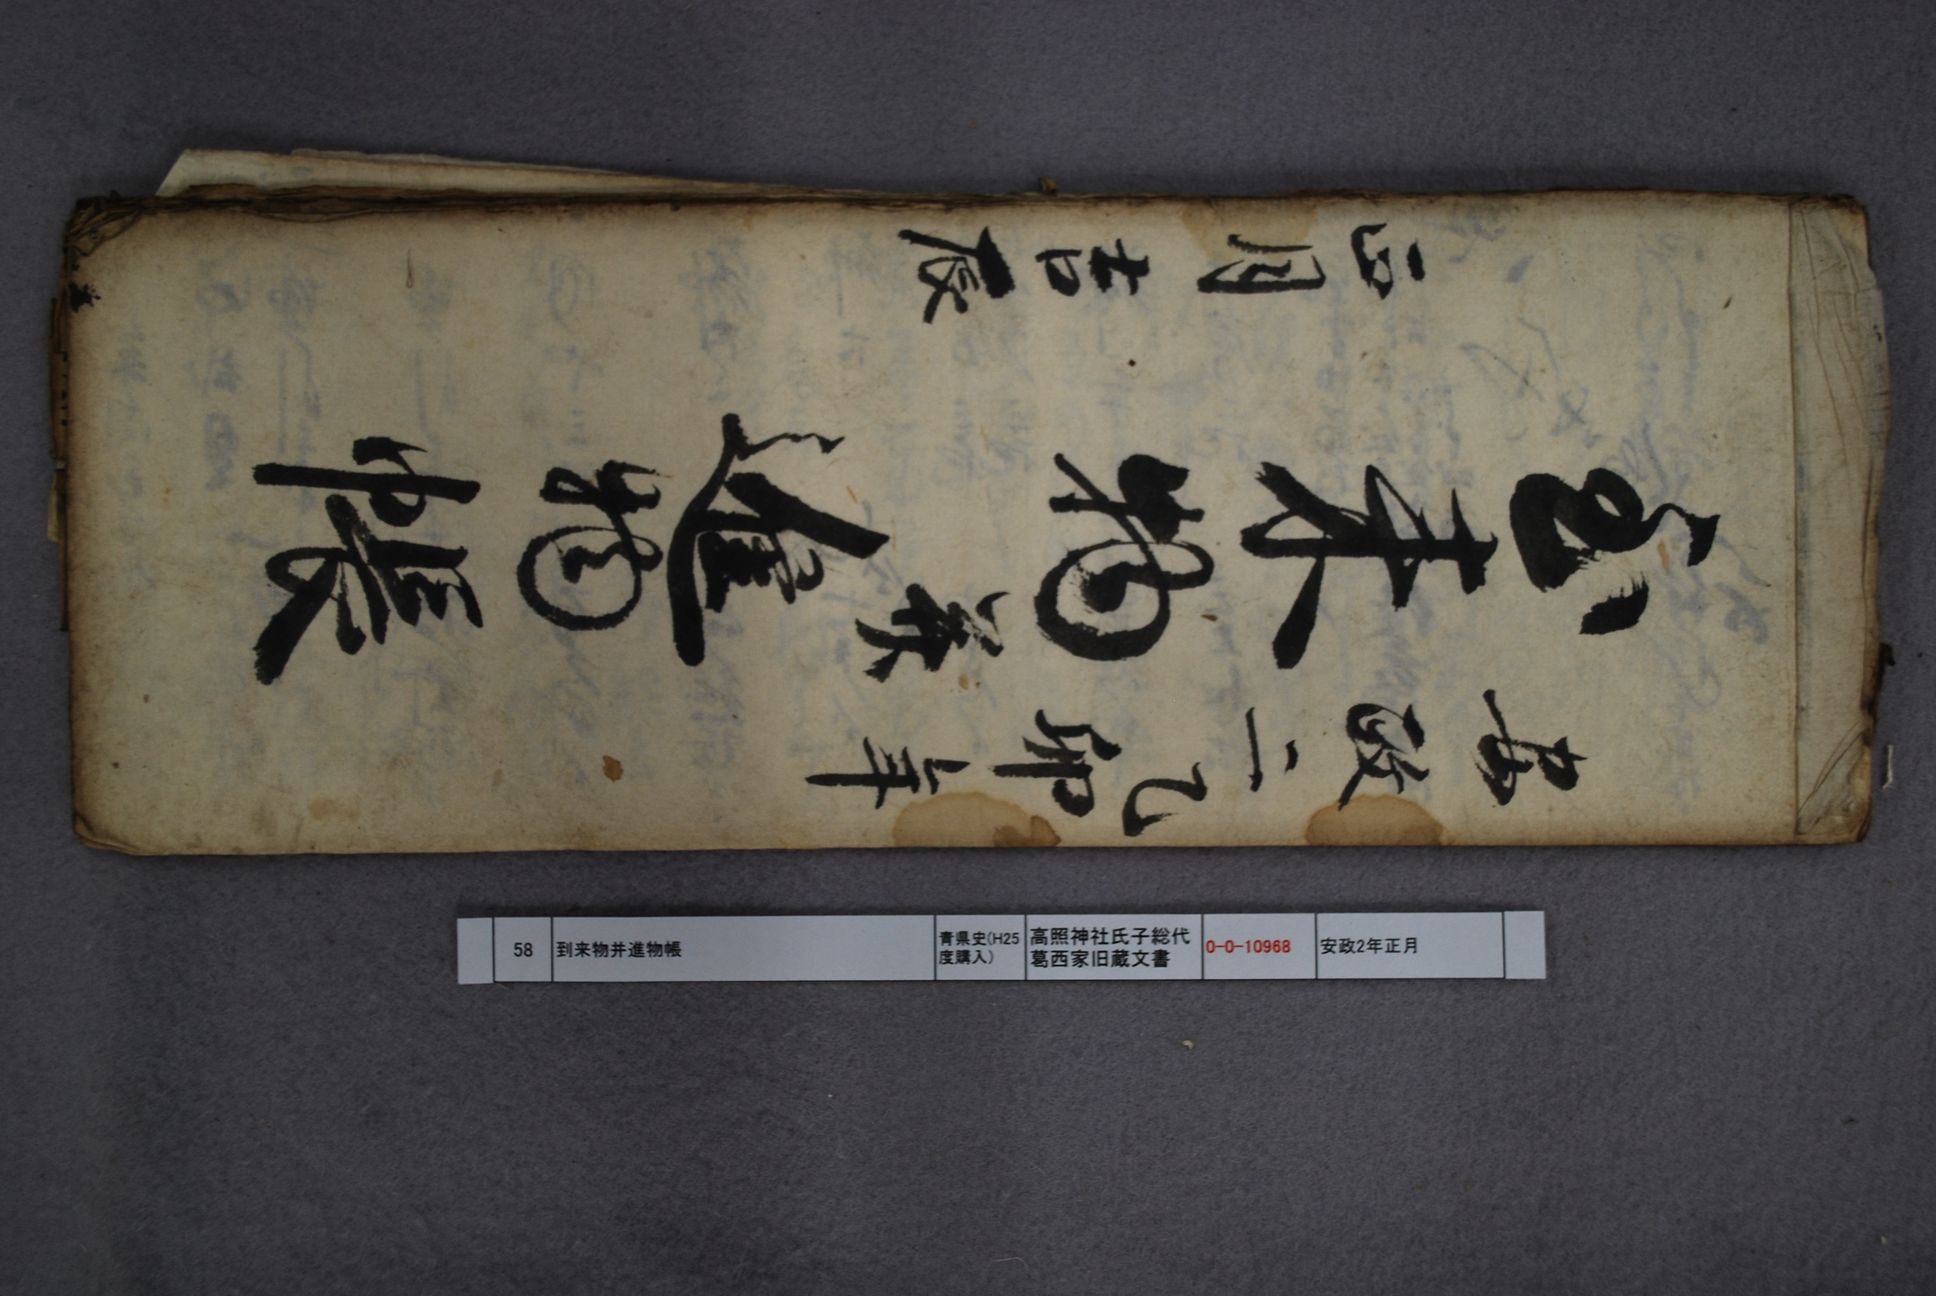 安政二乙卯年
到来物并進物帳
正月吉辰
58
到来物并進物帳
青県史(H25
度購入)
高照神社氏子総代
葛西家旧蔵文書
0-0-10968
安政2年正月